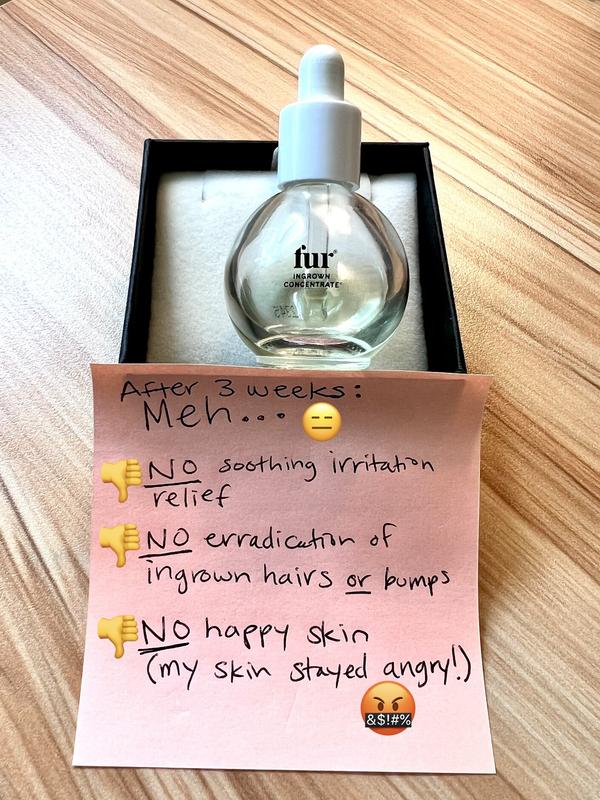 fur®
INGROWN
CONCENTRATE®
After 3 weeks:
Meh...
NO soothing irritation
relief
NO erradication of
ingrown hairs or bumps
NO happy skin
(my skin stayed angry!)
&$!#%